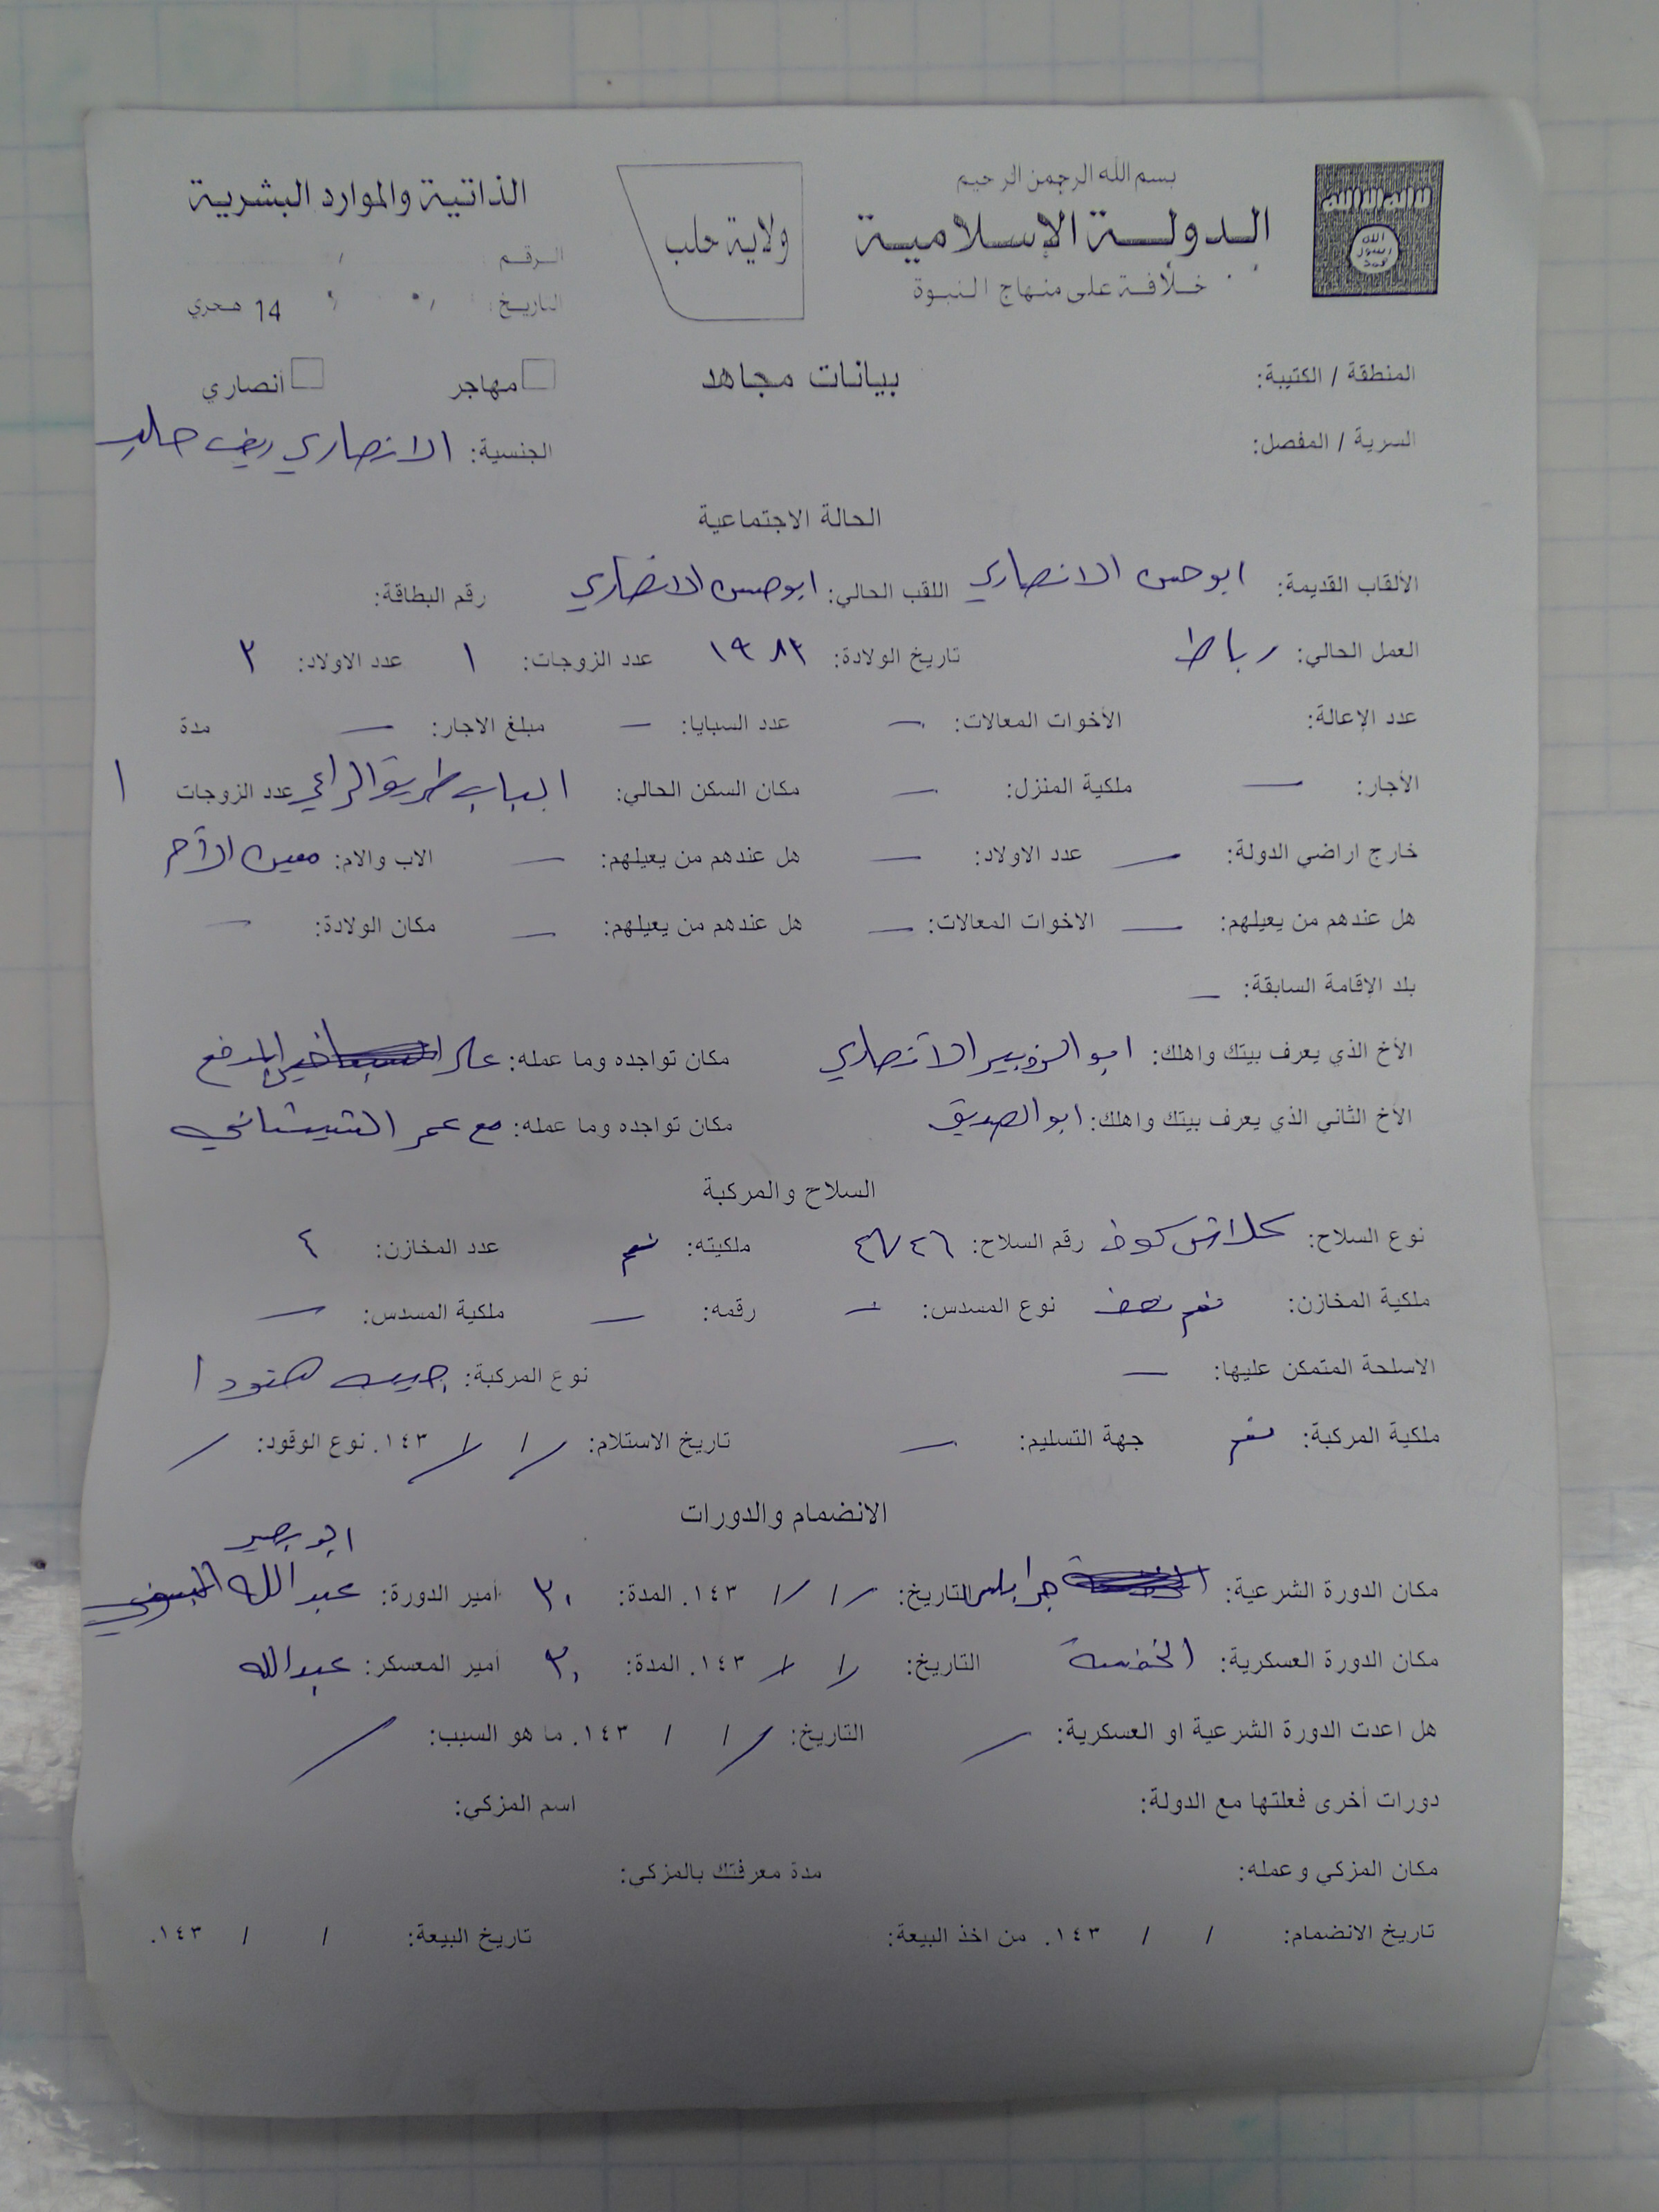 بسم الله الرحمن الرحيم
الدولة الإسلامية
خلافة على منهاج النبوة
لا اله الا الله
الله رسول محمد
ولاية حلب
الذاتية والموارد البشرية
الرقم: /
التاريخ: / / 14 هجري
المنطقة / الكتيبة: بيانات مجاهد مهاجر أنصاري
السرية / المفصل: الجنسية: الانصاري ريف حلب
الحالة الاجتماعية
الألقاب القديمة: ابو حسن الانصاري اللقب الحالي: ابو حسن الانصاري رقم البطاقة:
العمل الحالي: رباط تاريخ الولادة: ١٩٨٣ عدد الزوجات: ١ عدد الاولاد: ٢
عدد الإعالة: الأخوات المعالات: — عدد السبايا: — مبلغ الاجار: — مدة
الأجار: — ملكية المنزل: — مكان السكن الحالي: الباب طريق الراعي عدد الزوجات ١
خارج اراضي الدولة: — عدد الاولاد: — هل عندهم من يعيلهم: — الاب والام:
هل عندهم من يعيلهم: — الاخوات المعالات: — هل عندهم من يعيلهم: — مكان الولادة: —
بلد الإقامة السابقة: —
الأخ الذي يعرف بيتك واهلك: ابو الزوبير الانصاري مكان تواجده وما عمله: المدفع
الأخ الثاني الذي يعرف بيتك واهلك: ابو الصديق مكان تواجده وما عمله: مع عمر الشيشاني
السلاح والمركبة
نوع السلاح: كلاشن كوف رقم السلاح: ملكيته: نعم عدد المخازن: ٤
ملكية المخازن: نعم نصف نوع المسدس: — رقمه: — ملكية المسدس: —
الاسلحة المتمكن عليها: — نوع المركبة: جيب
ملكية المركبة: نعم جهة التسليم: — تاريخ الاستلام: / / ١٤٣. نوع الوقود: /
الانضمام والدورات
ابو بصير
مكان الدورة الشرعية: جرابلس التاريخ: / / ١٤٣. المدة: ٣٠ أمير الدورة: عبد الله
مكان الدورة العسكرية: الخفسة التاريخ: / / ١٤٣. المدة: ٣٠ أمير المعسكر: عبد الله
هل اعدت الدورة الشرعية او العسكرية: / التاريخ: / / ١٤٣. ما هو السبب: /
دورات أخرى فعلتها مع الدولة: اسم المزكي:
مكان المزكي وعمله: مدة معرفتك بالمزكي:
تاريخ الانضمام: / / ١٤٣. من اخذ البيعة: تاريخ البيعة: / / ١٤٣.